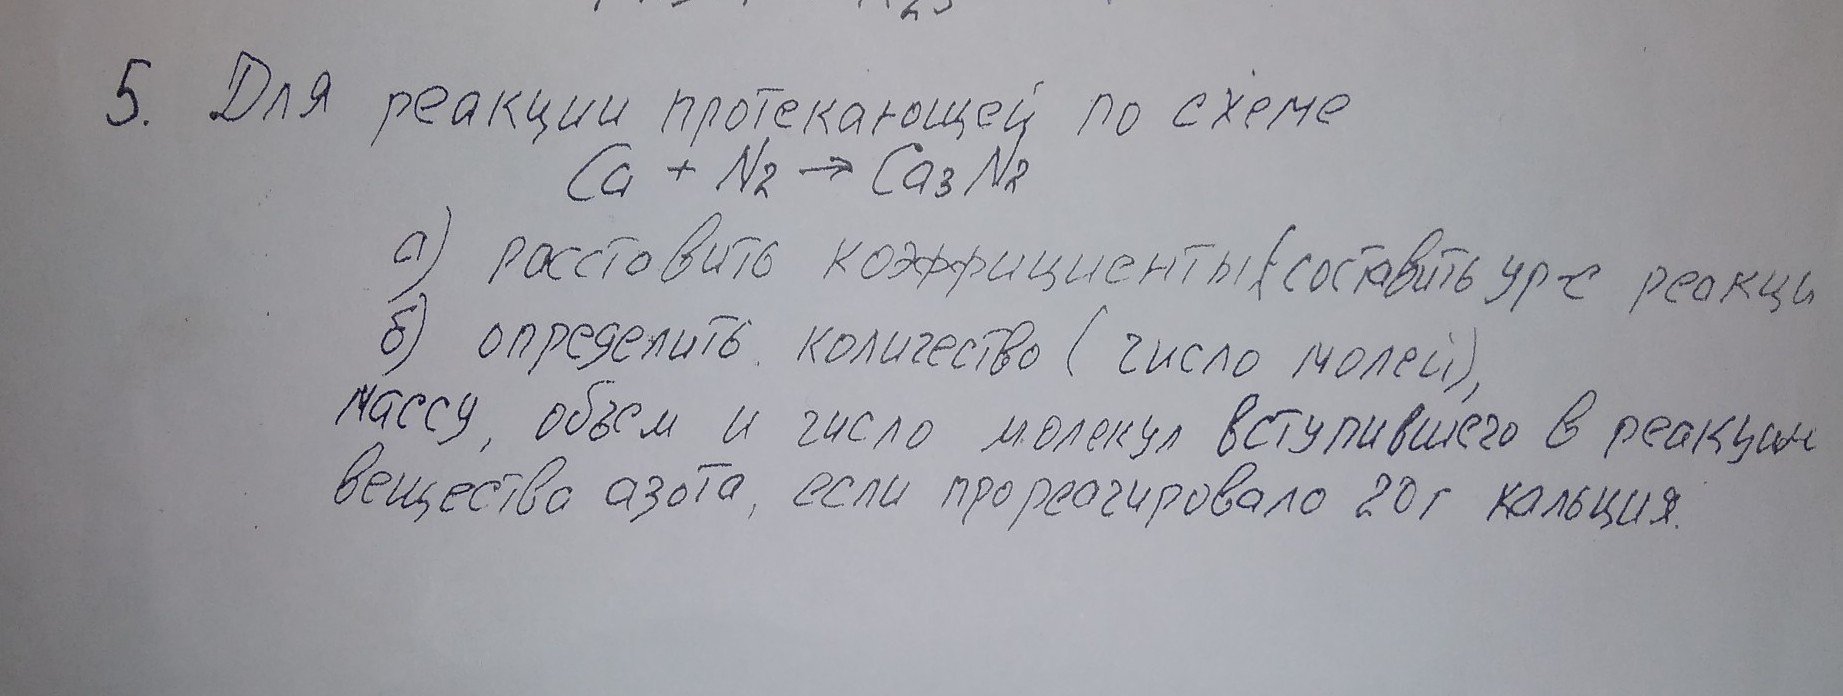 5. Для реакции протекающей по схеме
Ca + N2 → Ca3N2
а) расставить коэффициенты (составить ур-е реакци
б) определить количество (число молей),
массу, объем и число молекул вступившего в реакцию
вещества азота, если прореагировало 20г кальция.